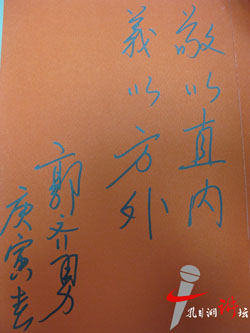 敬以直内
義以方外
郭齐勇
庚寅春
孔目湖讲坛